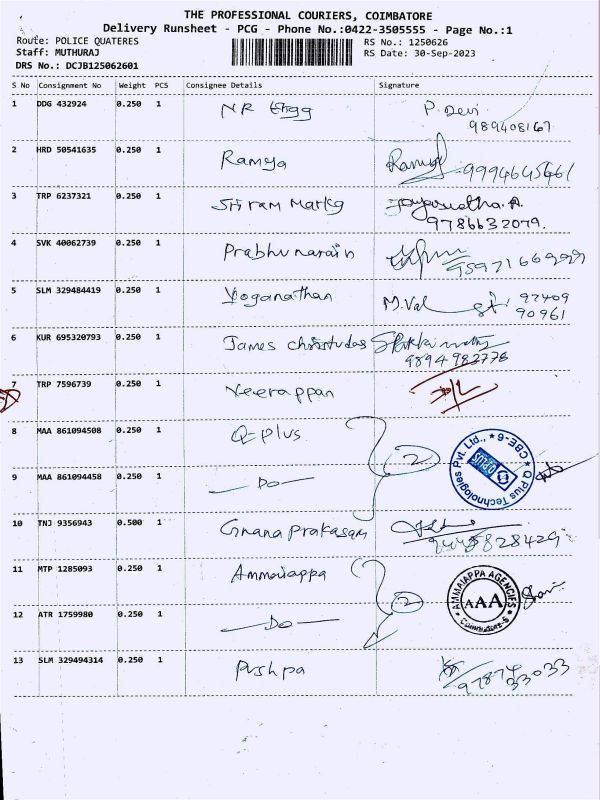 THE PROFESSIONAL COURIERS, COIMBATORE
Delivery Runsheet - PCG - Phone No.:0422-3505555 - Page No.:1
Route: POLICE QUATERES
RS No.: 1250626
Staff: MUTHURAJ
RS Date: 30-Sep-2023
DRS No.: DCJB125062601
S No Consignment No Weight PCS Consignee Details Signature
1 DDG 432924 0.250 1 NR P. Devi
989408167
2 HRD 50541635 0.250 1 Ramya
9994645661
3 TRP 6237321 0.250 1 Sriram Markg Jayasudha.A.
9786632079.
4 SVK 40062739 0.250 1 Prabhunarain
5 SLM 329484419 0.250 1 Yoganathan M.Val 97409
90961
6 KUR 695320793 0.250 1 James christudas
9894982778
7 TRP 7596739 0.250 1 Veerappan
8 MAA 861094508 0.250 1 Q-plus 2
Q Plus Technologies Pvt. Ltd., * CBE-6 *
QPLUS
9 MAA 861094458 0.250 1 — Do —
10 TNJ 9356943 0.500 1 Gnanaprakasam
11 MTP 1285093 0.250 1 Ammaiappa 2
AMMAIAPPA AGENCIES
AAA
Coimbatore-6
12 ATR 1759980 0.250 1 — Do —
13 SLM 329494314 0.250 1 Pushpa
97874
33033